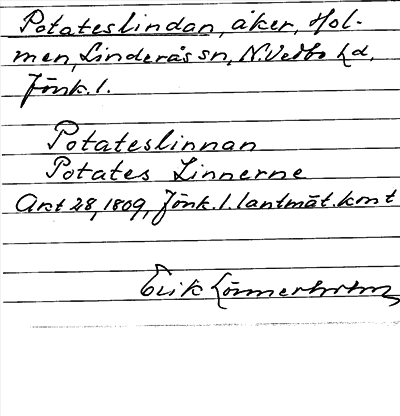 Potateslindan, åker, Hol-
men, Linderås sn, N. Vedbo hd,
Jönk. l.
Potateslinnan
Potates Linnerne
Akt 28, 1809, Jönk. l. lantmät. kont
Erik